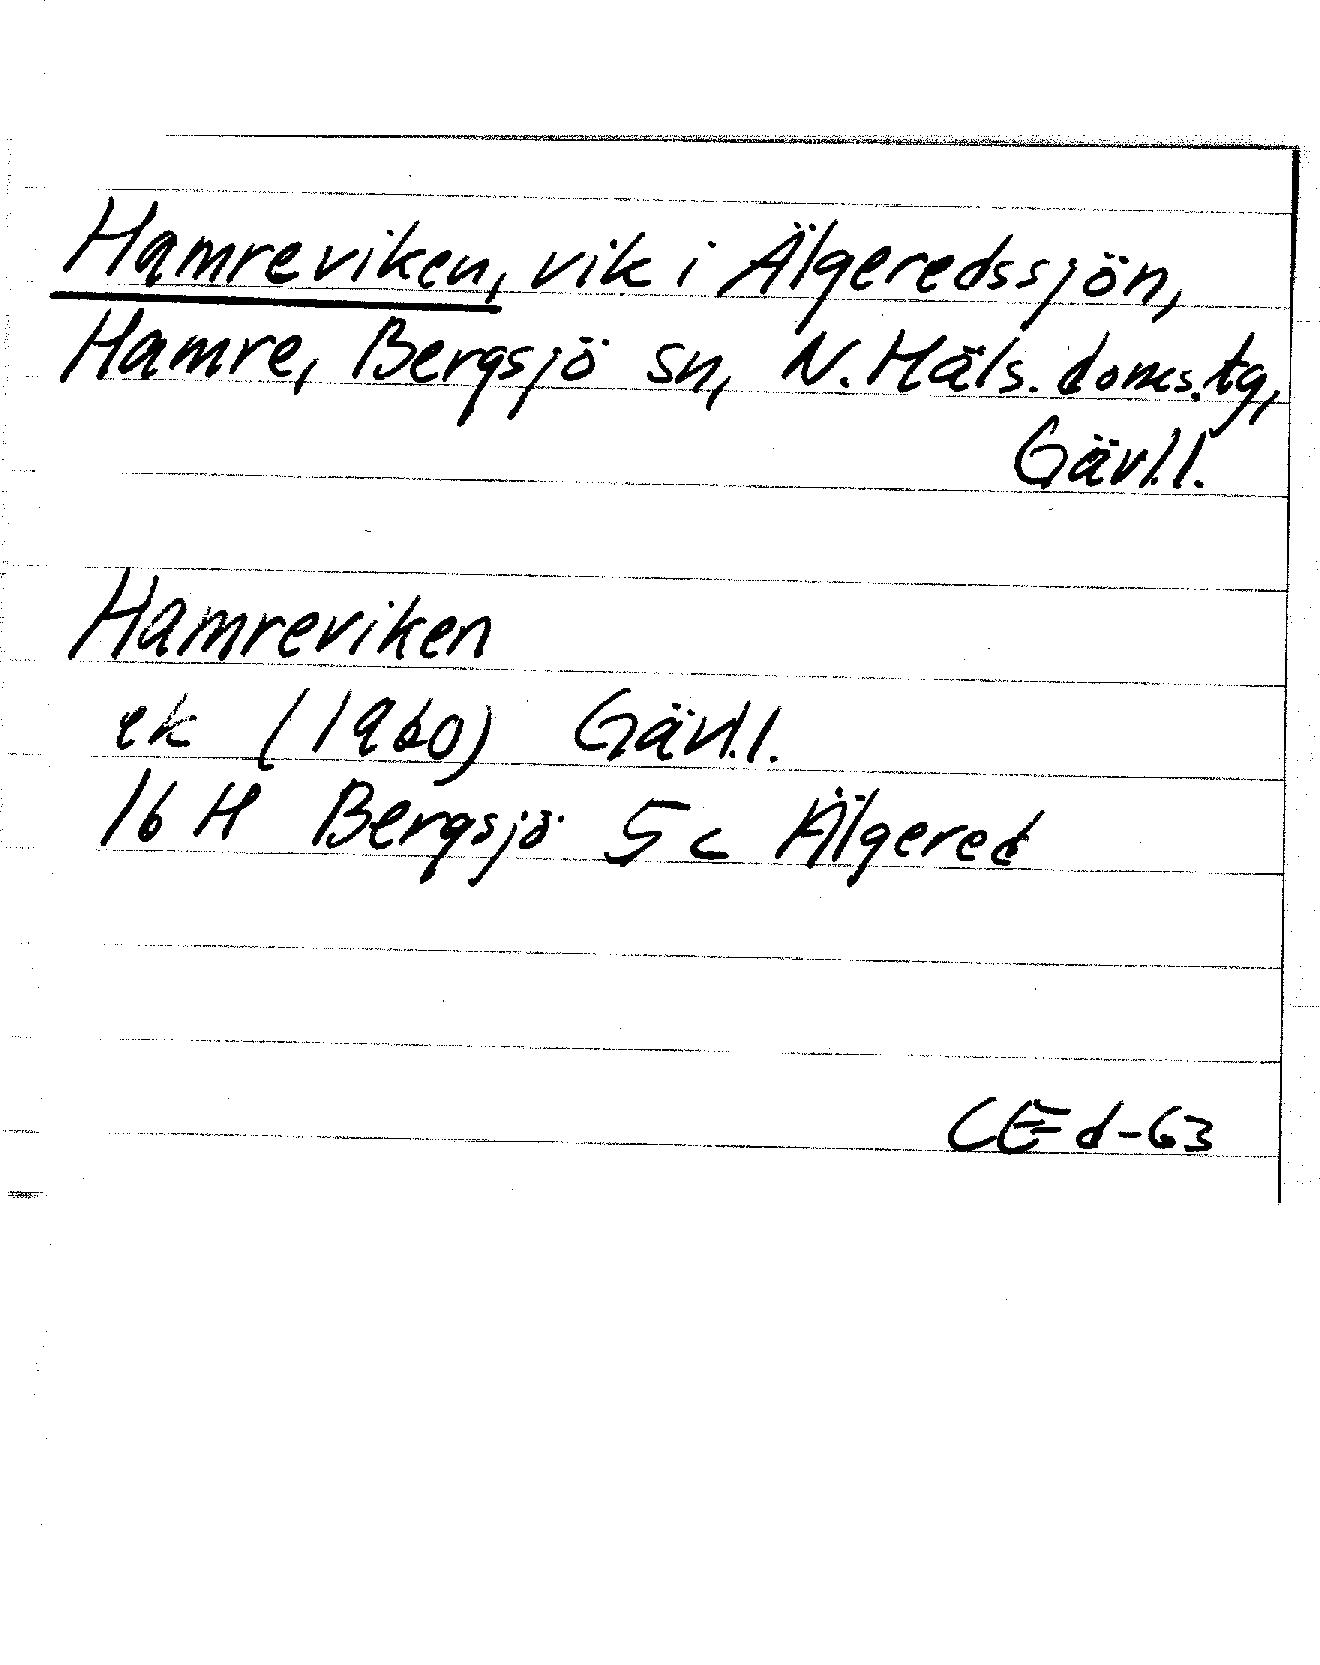 Hamreviken, vik i Älgeredssjön,
Hamre, Bergsjö sn, N. Häls. doms. tg,
Gävl.l.
Hamreviken
ek (1960) Gävl.l.
16 H Bergsjö 5 c Älgered
CEd-63